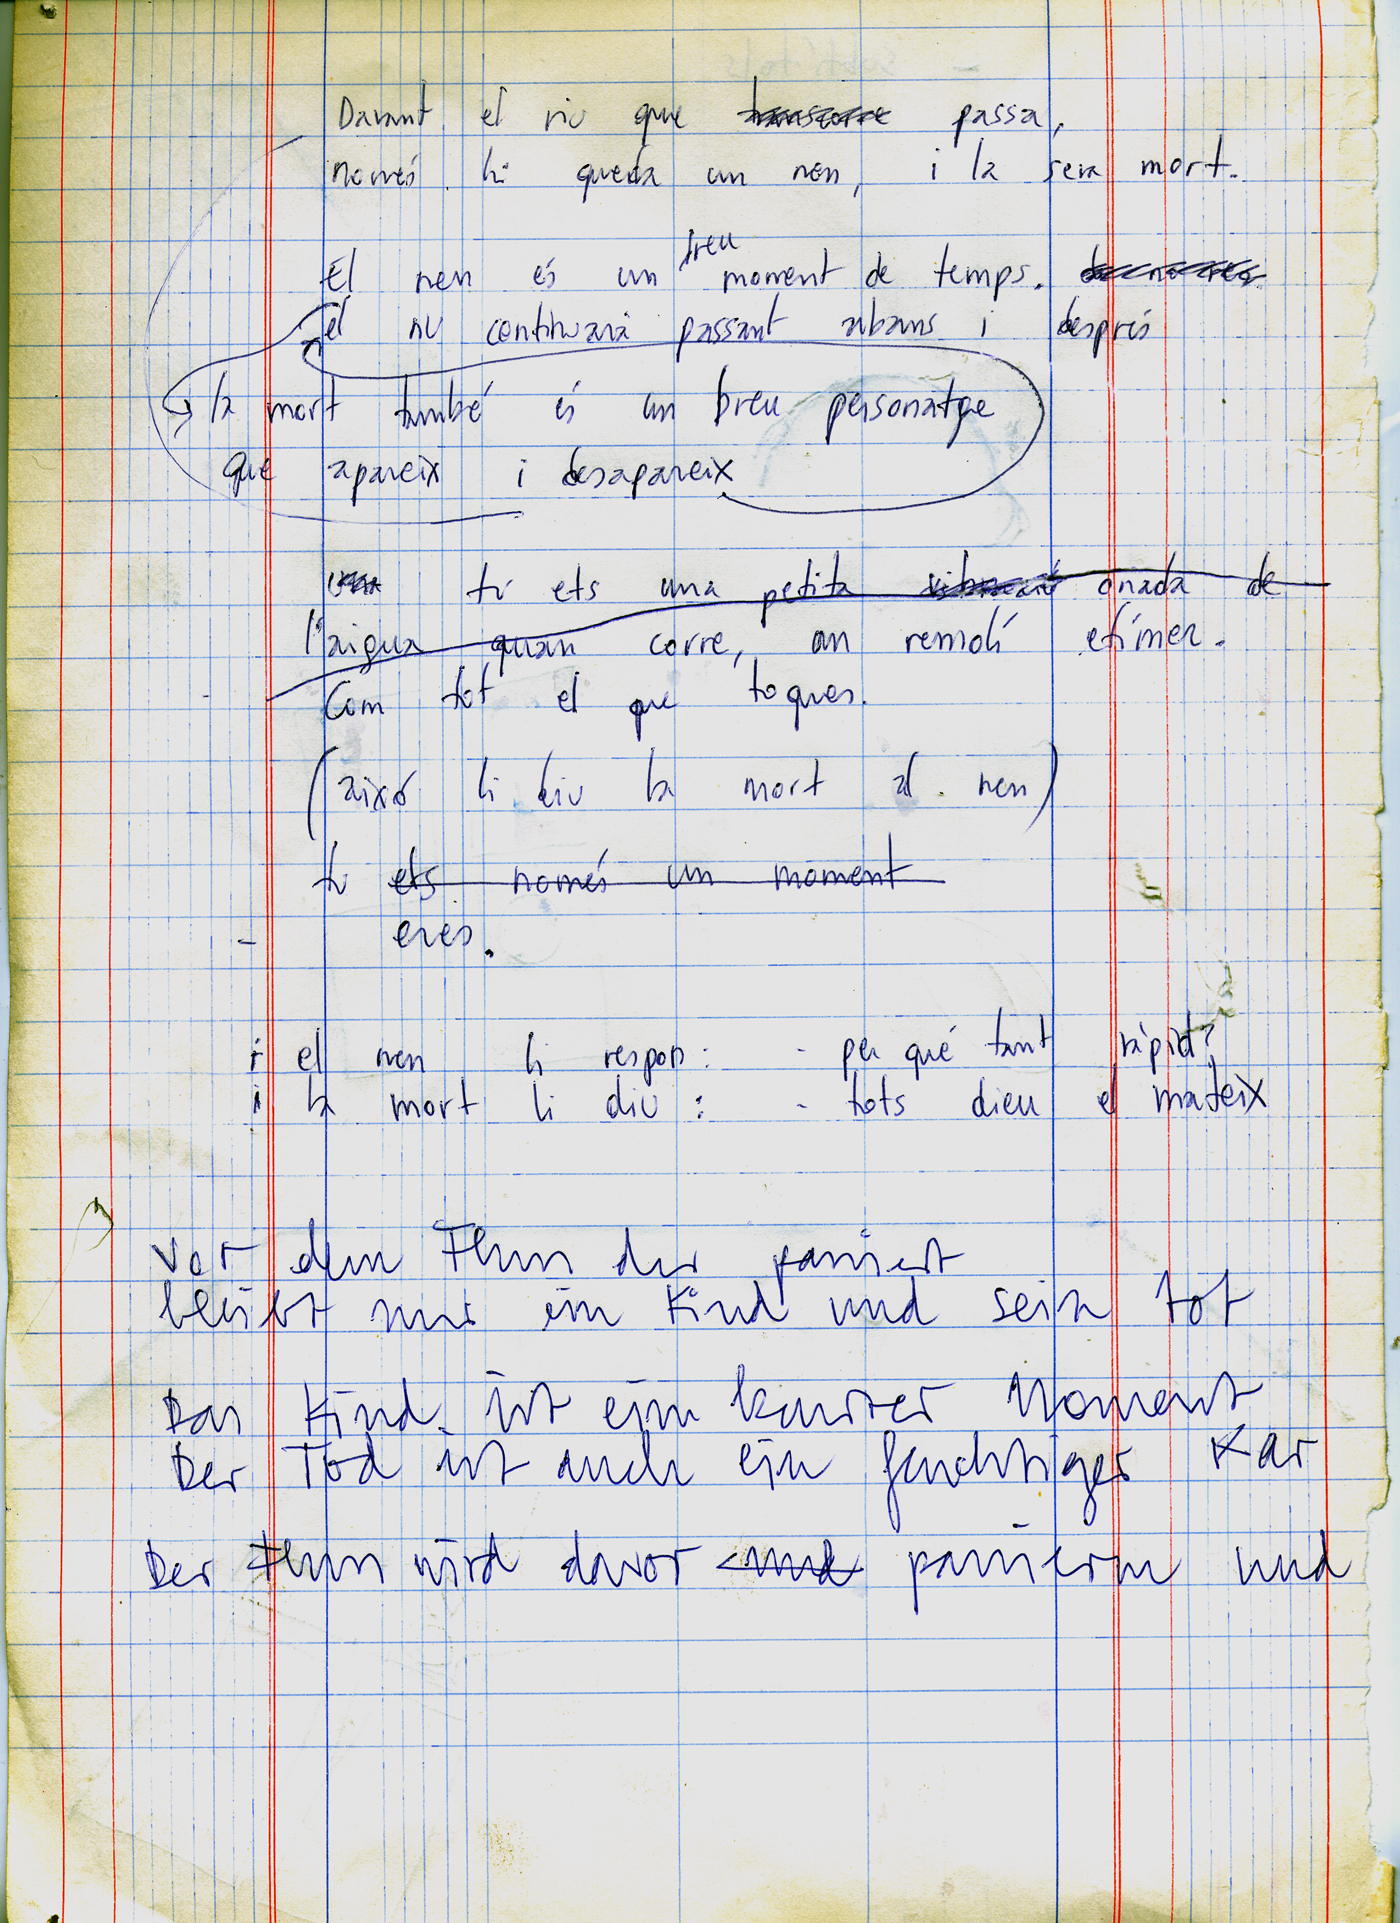 Davant el riu que transcorre passa,
només hi queda un nen, i la seva mort.
El nen és un breu moment de temps.
el riu continuarà passant abans i després
la mort també és un breu personatge
que apareix i desapareix
tu ets una petita vibració onada de
l'aigua quan corre, un remolí efímer.
Com tot el que toques.
(això li diu la mort al nen)
tu ets només un moment
- eres.
i el nen li respon: - per qué tant ràpid?
i la mort li diu: - tots dieu el mateix
Vor dem Fluss der passiert
bleibt nur ein Kind und sein tot
Das Kind ist ein kurzer Moment
Der Tod ist auch ein Kar
Der Fluss wird davor und passieren und